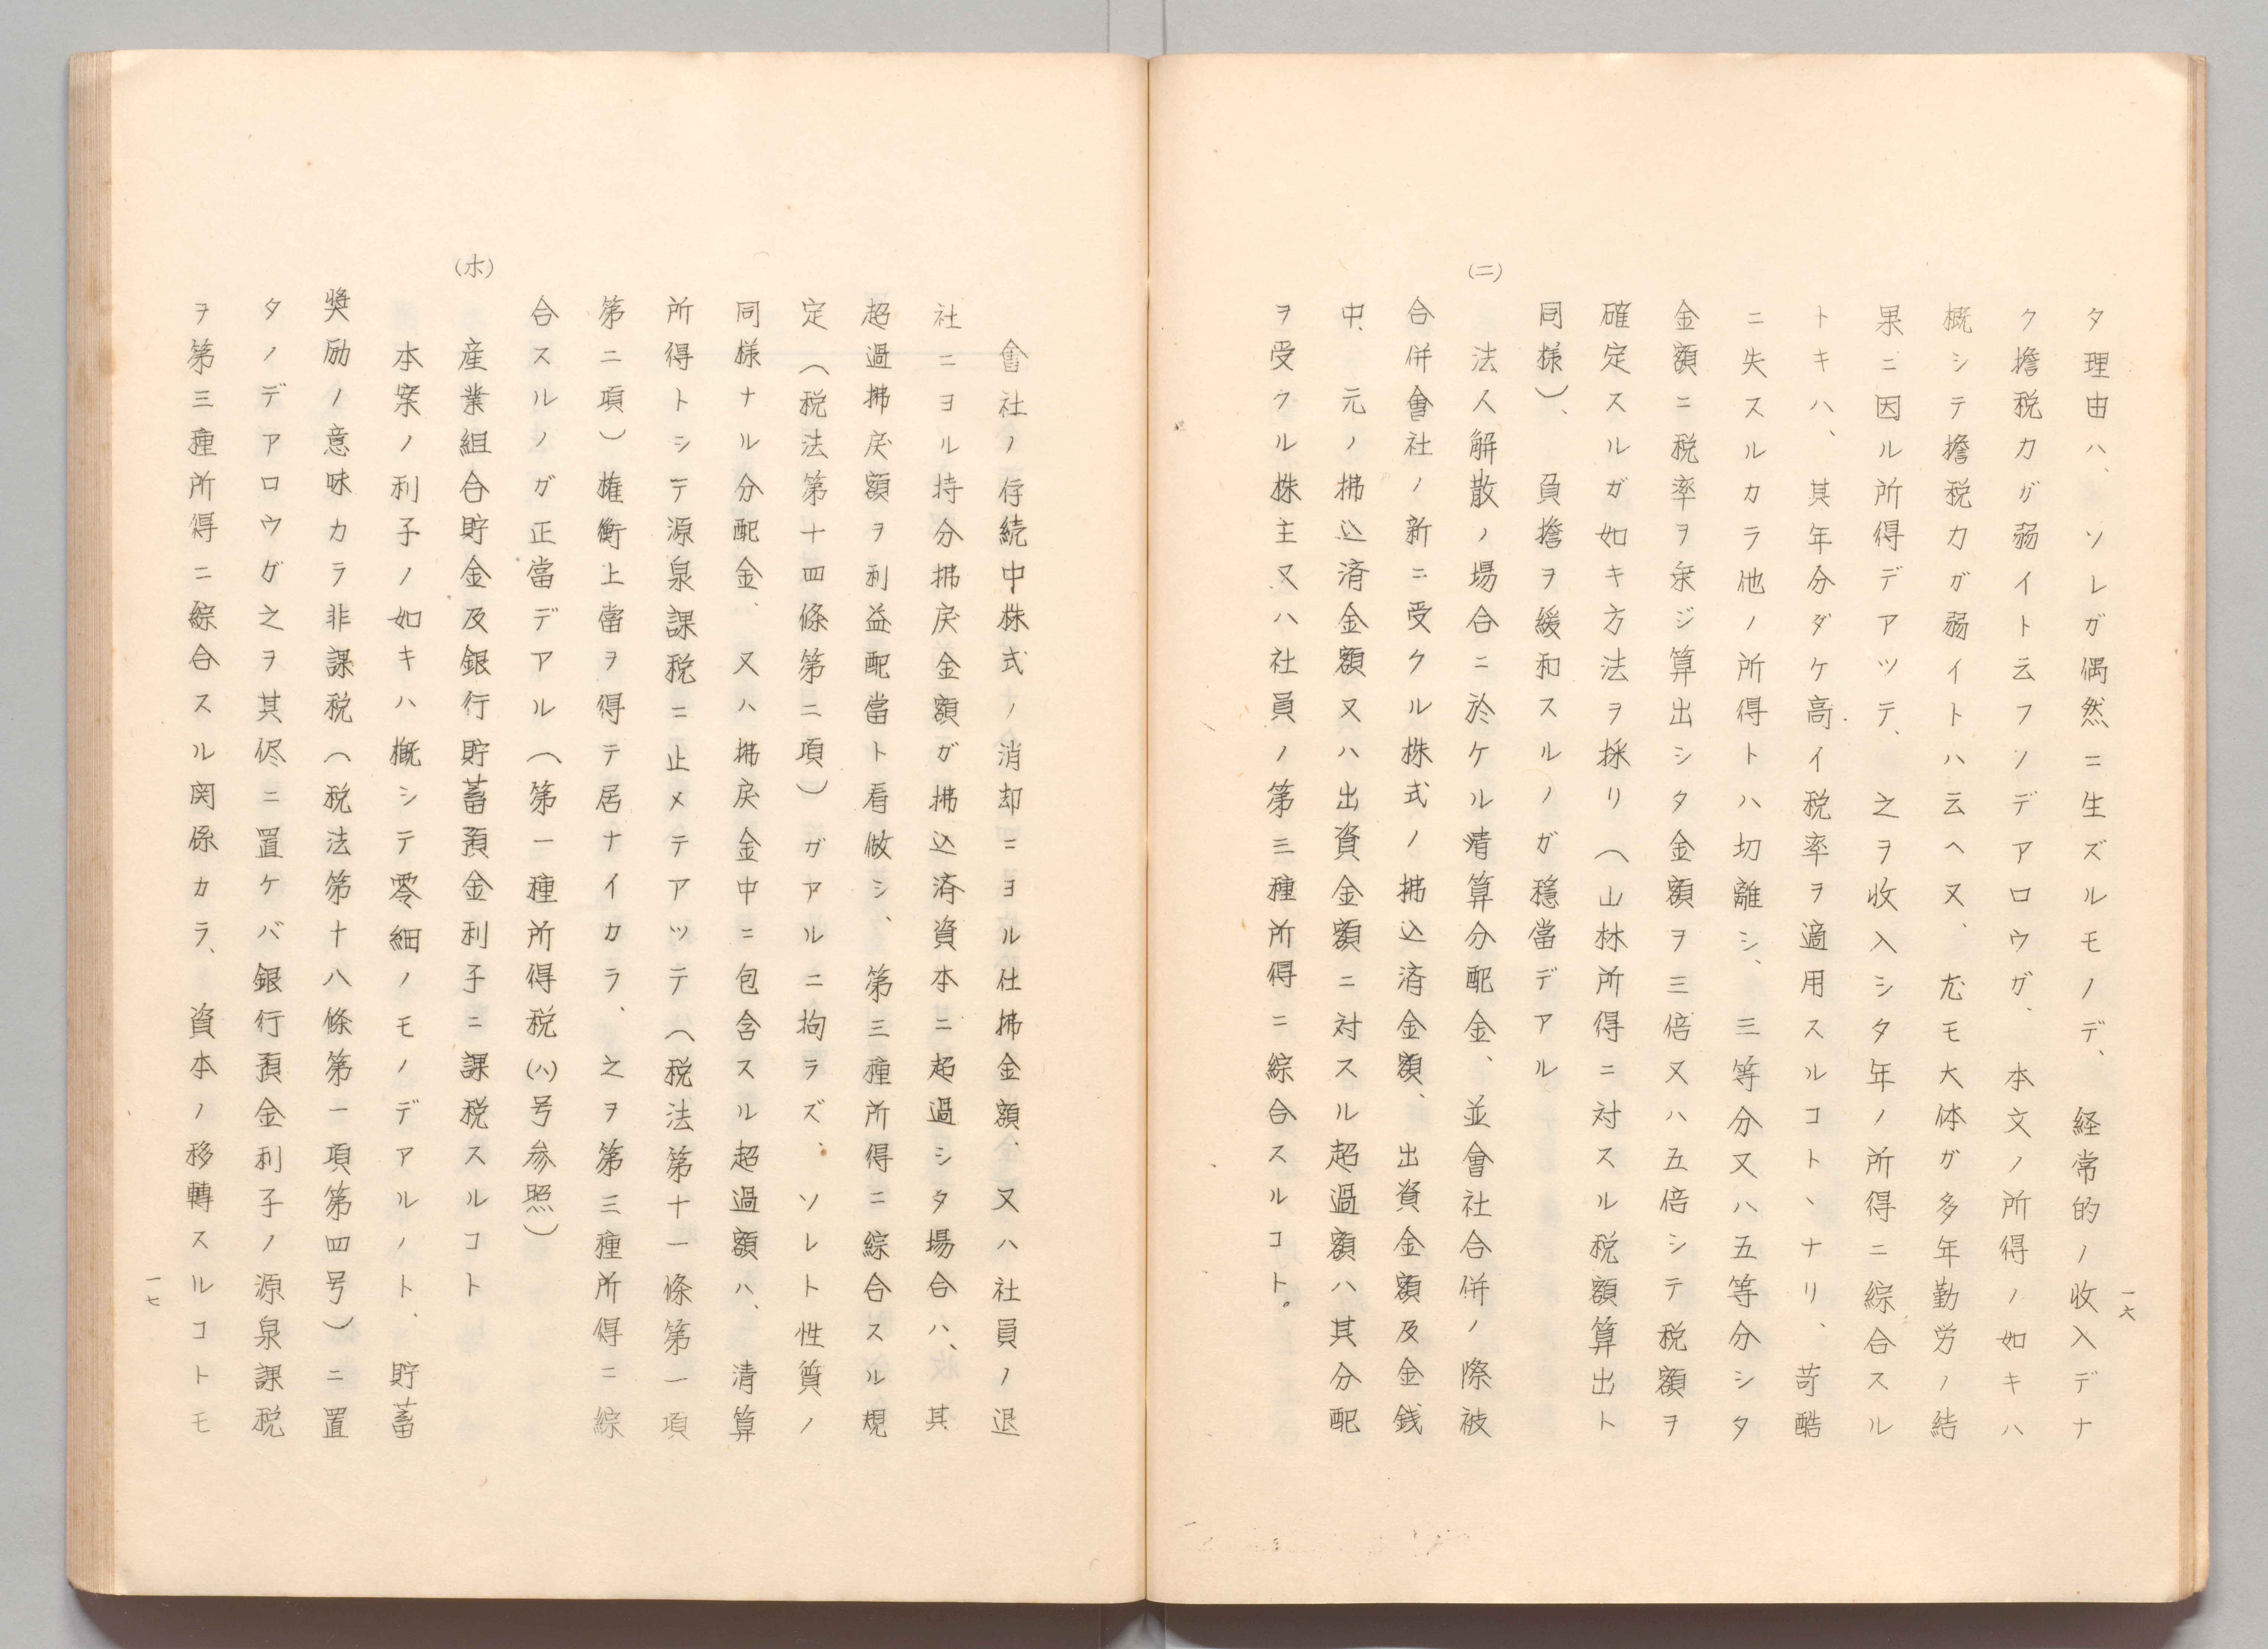 タ理由ハ、ソレガ偶然ニ生ズルモノデ、経常的ノ收入デナ
ク擔税力ガ弱イト云フノデアロウガ、本文ノ所得ノ如キハ
概シテ擔税力ガ弱イトハ云ヘヌ、尤モ大体ガ多年勤労ノ結
果ニ因ル所得デアツテ、之ヲ收入シタ年ノ所得ニ綜合スル
トキハ、其年分ダケ高イ税率ヲ適用スルコトヽナリ、苛酷
ニ失スルカラ他ノ所得トハ切離シ、三等分又ハ五等分シタ
金額ニ税率ヲ乗ジ算出シタ金額ヲ三倍又ハ五倍シテ税額ヲ
確定スルガ如キ方法ヲ採リ(山林所得ニ対スル税額算出ト
同様)、負擔ヲ緩和スルノガ穏當デアル
(ニ)
法人解散ノ場合ニ於ケル清算分配金、並會社合併ノ際被
合併會社ノ新ニ受クル株式ノ拂込済金額、出資金額及金銭
中、元ノ拂込済金額又ハ出資金額ニ対スル超過額ハ其分配
ヲ受クル株主又ハ社員ノ第三種所得ニ綜合スルコト。
一六
會社ノ存続中株式ノ消却ニヨル仕拂金額、又ハ社員ノ退
社ニヨル持分拂戻金額ガ拂込済資本ニ超過シタ場合ハ、其
超過拂戻額ヲ利益配當ト看做シ、第三種所得ニ綜合スル規
定(税法第十四條第二項)ガアルニ拘ラズ、ソレト性質ノ
同様ナル分配金、又ハ拂戻金中ニ包含スル超過額ハ、清算
所得トシテ源泉課税ニ止メテアツテ(税法第十一條第一項
第二項)権衡上當ヲ得テ居ナイカラ、之ヲ第三種所得ニ綜
合スルノガ正當デアル(第一種所得税(ハ)号参照)
(ホ)
産業組合貯金及銀行貯蓄預金利子ニ課税スルコト
本案ノ利子ノ如キハ概シテ零細ノモノデアルノト、貯蓄
奬励ノ意味カラ非課税(税法第十八條第一項第四号)ニ置
タノデアロウガ之ヲ其侭ニ置ケバ銀行預金利子ノ源泉課税
ヲ第三種所得ニ綜合スル関係カラ、資本ノ移轉スルコトモ
一七